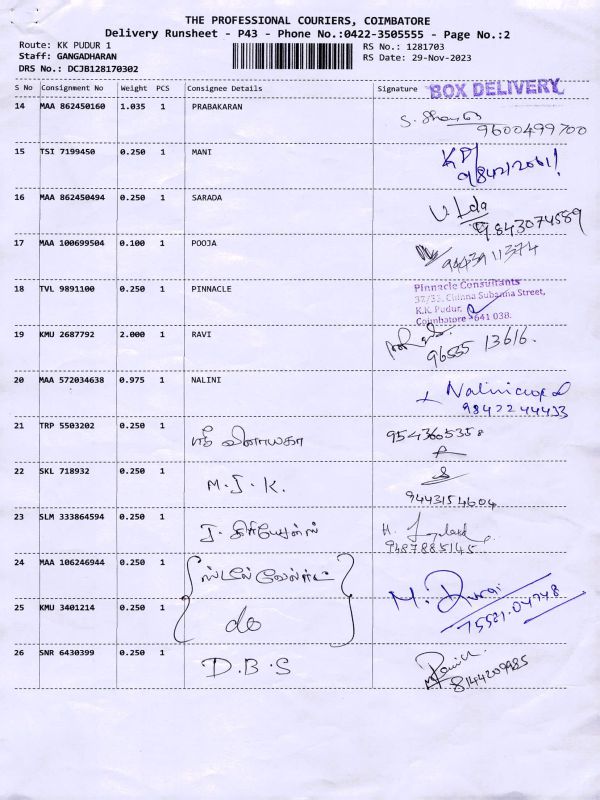 THE PROFESSIONAL COURIERS, COIMBATORE
Delivery Runsheet - P43 - Phone No.:0422-3505555 - Page No.:2
Route: KK PUDUR 1 RS No.: 1281703
Staff: GANGADHARAN RS Date: 29-Nov-2023
DRS No.: DCJB128170302
S No Consignment No Weight PCS Consignee Details Signature BOX DELIVERY
14 MAA 862450160 1.035 1 PRABAKARAN
9600499700
15 TSI 7199450 0.250 1 MANI
16 MAA 862450494 0.250 1 SARADA
9843074589
17 MAA 100699504 0.100 1 POOJA
9443911374
18 TVL 9891100 0.250 1 PINNACLE Pinnacle Consultants
37/33, Chinna Subanna Street,
K.K. Pudur,
Coimbatore - 641 038.
19 KMU 2687792 2.000 1 RAVI
96555 13616.
20 MAA 572034638 0.975 1 NALINI
9842244433
21 TRP 5503202 0.250 1 ஸ்ரீ விநாயகா 9543605358
22 SKL 718932 0.250 1 M.J.K.
9443154604
23 SLM 333864594 0.250 1 J.
9487885145
24 MAA 106246944 0.250 1
M. Durai
25 KMU 3401214 0.250 1 do 75581.04748
26 SNR 6430399 0.250 1 D.B.S
8144209985